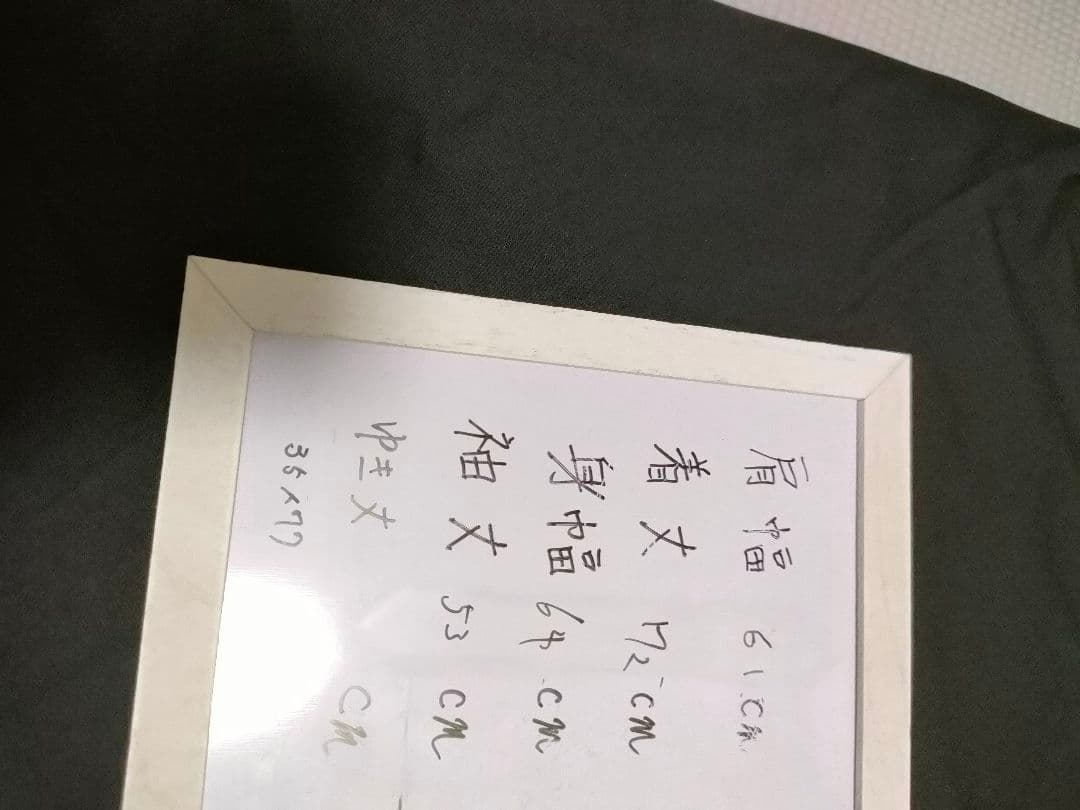 肩幅 61cm
着丈 72cm
身幅 64cm
袖丈 53cm
ゆき丈 cm